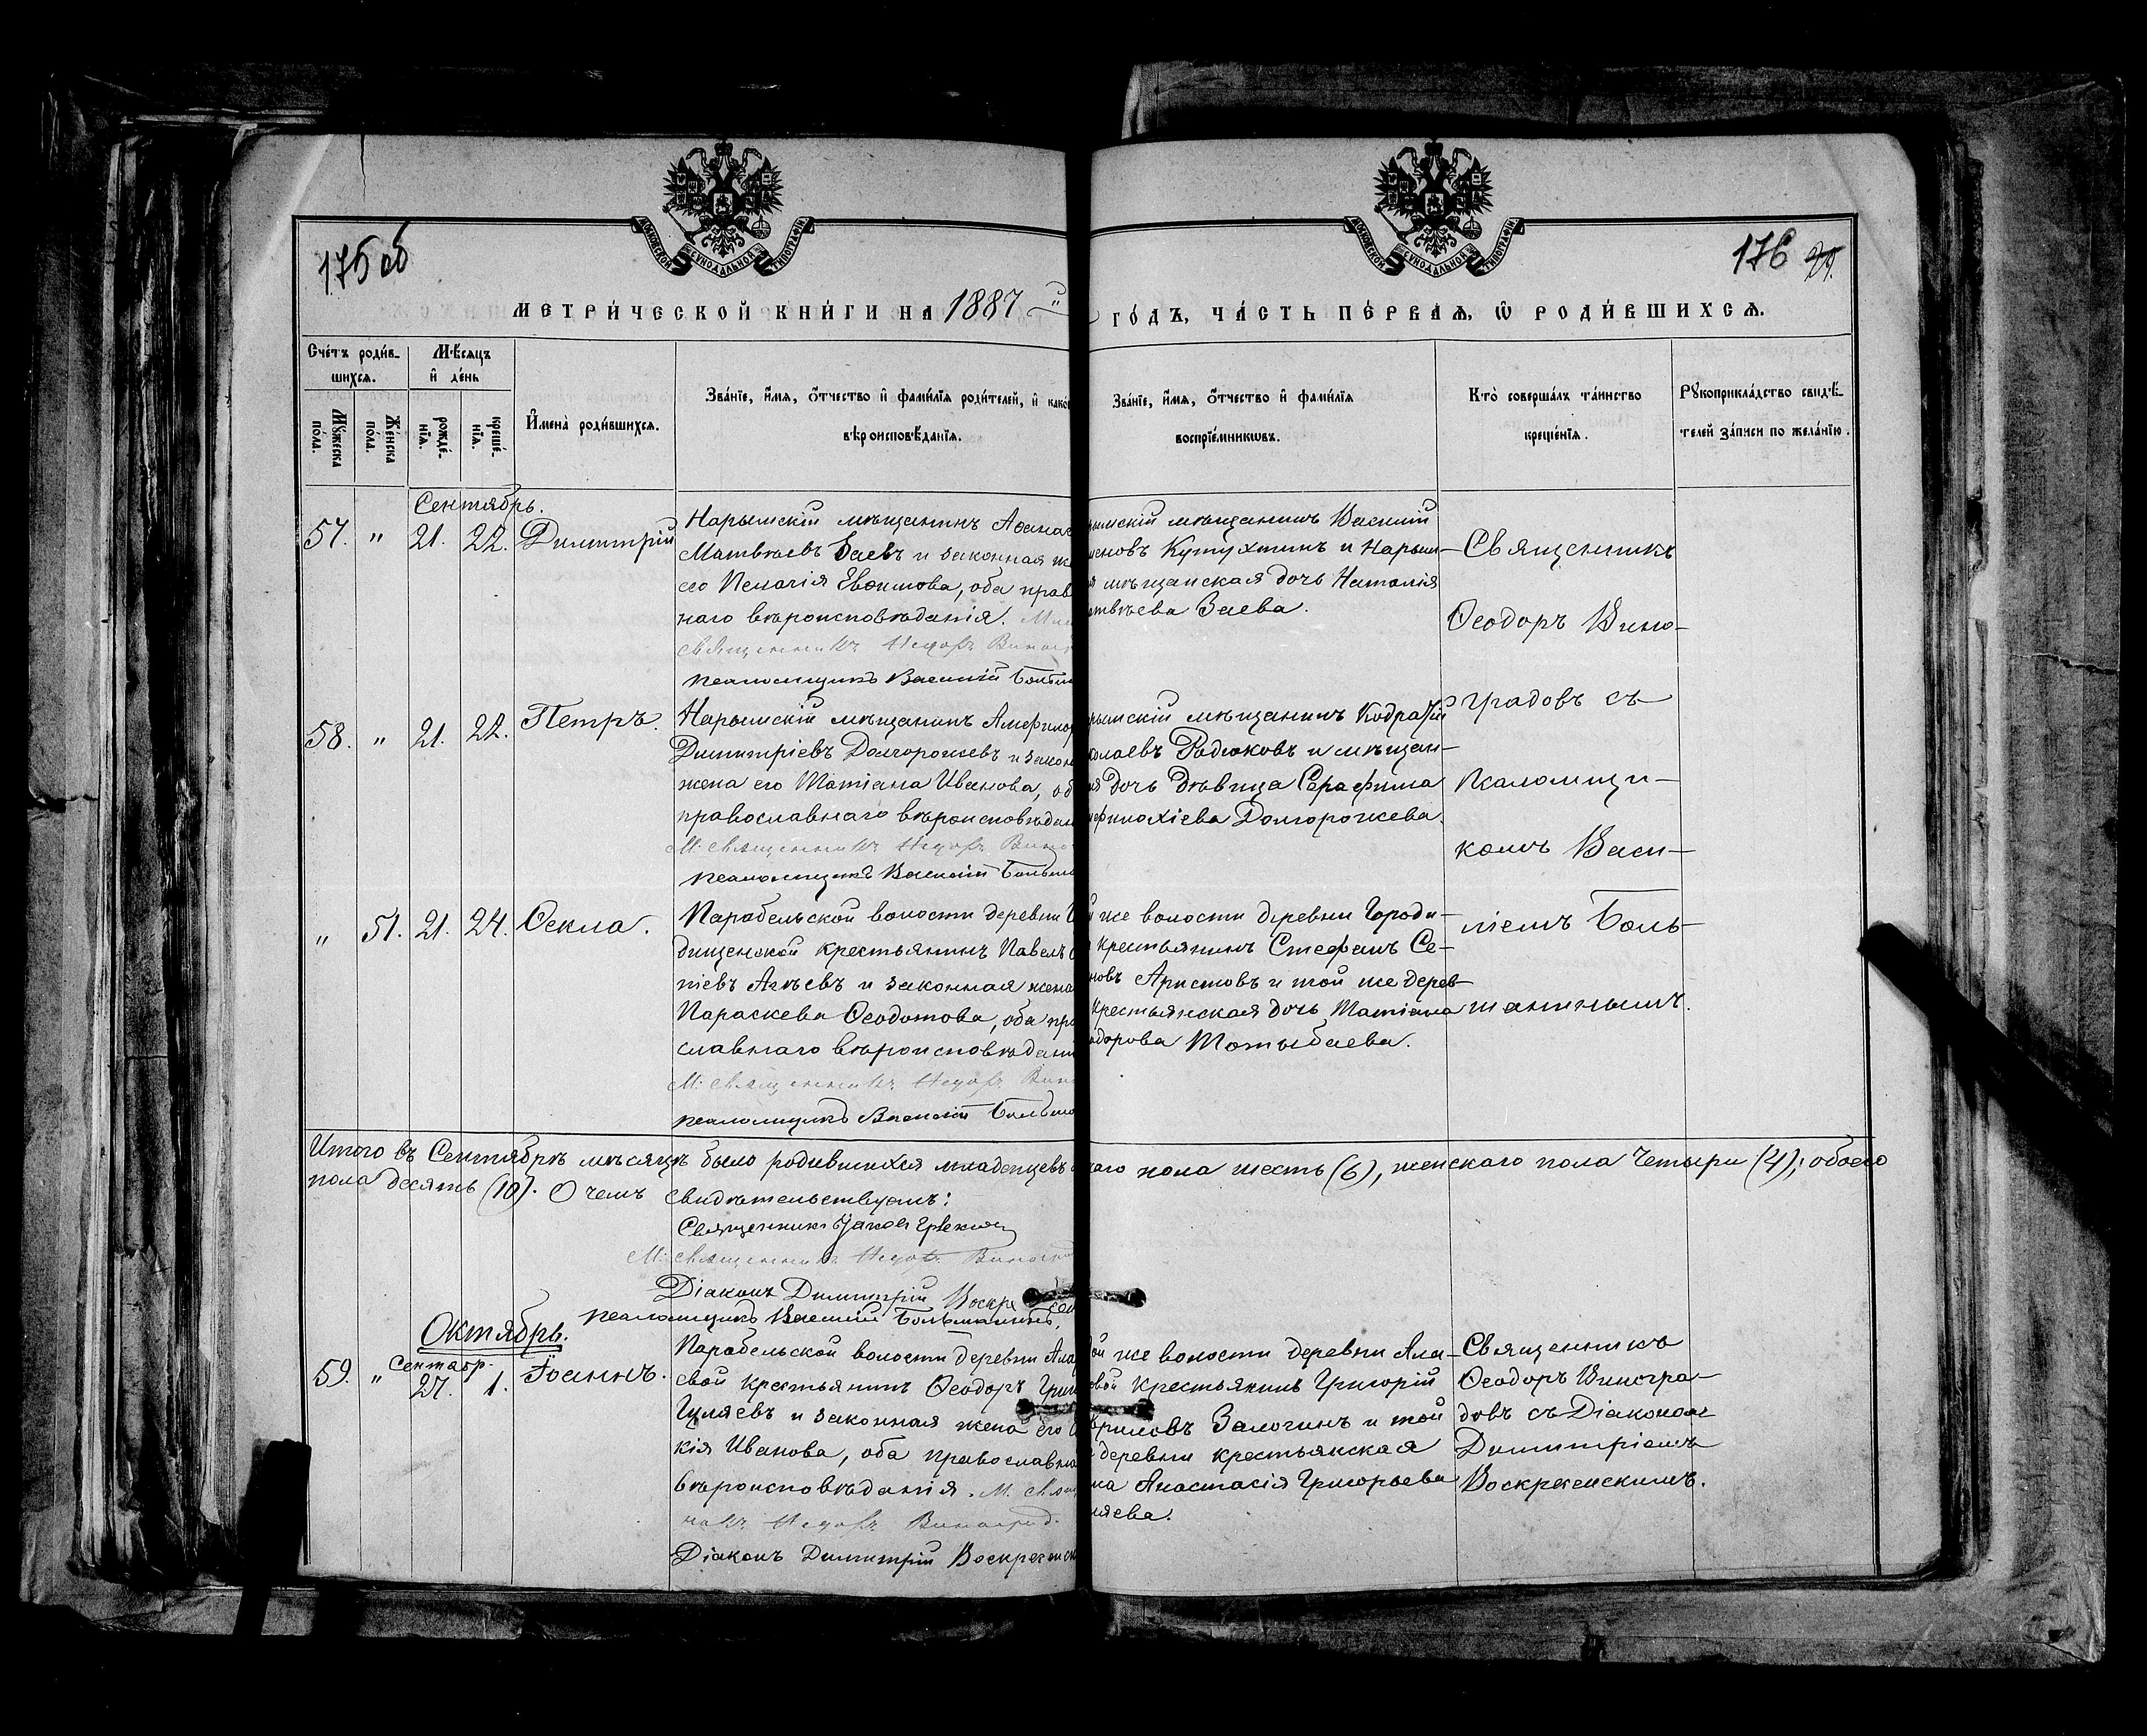 175 об
176
МОСКОВСКОЙ СѴНОДАЛЬНОЙ ТИПОГРАФІИ
МОСКОВСКОЙ СѴНОДАЛЬНОЙ ТИПОГРАФІИ
МЕТРИ́ЧЕСКОЙ КНИ́ГИ НА 1887 й
ГО́ДЪ, ЧА́СТЬ ПЕ́РВАѦ, Ѡ РОДИ́ВШИХСѦ.
Сче́тъ роди́в-
шихсѧ.
Мꙋ́жеска по́ла.
Же́нска по́ла.
Мѣ́сѧцъ
и҆ де́нь
рожде́-нїѧ.
креще́-нїѧ.
И҆мена̀ роди́вшихсѧ.
Зва́нїе, и҆́мѧ, ѻ҆́тчество и҆ фами́лїѧ роди́телей, и҆ како́
вѣроисповѣ́данїѧ.
Зва́нїе, и҆́мѧ, ѻ҆́тчество и҆ фами́лїѧ
воспрїе́мникѡвъ.
Кто̀ соверша́лъ та́инство
креще́нїѧ.
Рꙋкоприкла́дство свидѣ́-
телей за́писи по жела́нїю.
Сентябрь.
57. " 21. 22. Димитрій
Нарымскій мѣщанинъ Аѳанас
Матвѣевъ Заевъ и законная ж
его Пелагія Евѳимова, оба прав
наго вѣроисповѣданія.
священникъ Ѳедоръ Виногр
псаломщикъ Василій Больш
рымскій мѣщанинъ Василій
меновъ Кутухтинъ и Нарым-
я мѣщанская дочь Наталія
атвѣева Заева.
Священникъ
Ѳеодоръ Вино-
градовъ съ
псаломщи-
комъ Васи-
ліемъ Боль-
шанинымъ.
58. " 21. 22. Петръ.
Нарымскій мѣщанинъ Амфилох
Димитріевъ Долгорожевъ и закон
жена его Татіана Иванова, об
православнаго вѣроисповѣдан
М. священникъ Ѳедоръ Вино
псаломщикъ Василій Больша
рымскій мѣщанинъ Кодратій
колаевъ Родюковъ и мѣщан-
ая дочь дѣвица Серафима
мфилохіева Долгорожева.
" 51. 21. 24. Ѳекла.
Парабельской волости деревни Г
дищенской крестьянинъ Павелъ
тіевъ Агѣевъ и законная жена
Параскева Ѳеодотова, оба пра
славнаго вѣроисповѣдані
М. священникъ Ѳедоръ Вин
псаломщикъ Василій Больша
й же волости деревни Городи-
крестьянинъ Стефанъ Се-
новъ Аристовъ и той же дерев-
крестьянская дочь Татіана
одорова Тотыбаева.
Итого въ Сентябрѣ мѣсяцѣ было родившихся младенцевъ
каго пола шесть (6), женскаго пола четыри (4); обоего
пола десять (10). О чемъ свидѣтельствуемъ:
Священникъ Іаковъ
М. священникъ Ѳедоръ Виногра
Діаконъ Димитрій Воскресен
псаломщикъ Василій Большанинъ.
Октябрь.
59. " Сентябр. 27. 1. Іоаннъ.
Парабельской волости деревни Ала
евой крестьянинъ Ѳеодоръ Григ
Гуляевъ и законная жена его
кія Иванова, оба православна
вѣроисповѣданія. М. свящ
никъ Ѳедоръ Виноград.
Діаконъ Димитрій Воскресенск
ой же волости деревни Ала-
евой крестьянинъ Григорій
вриловъ Залогинъ и той
деревни крестьянская
на Анастасія Григорьева
ляева.
Священникъ
Ѳеодоръ Виногра-
довъ съ Діакономъ
Димитріемъ
Воскресенскимъ.